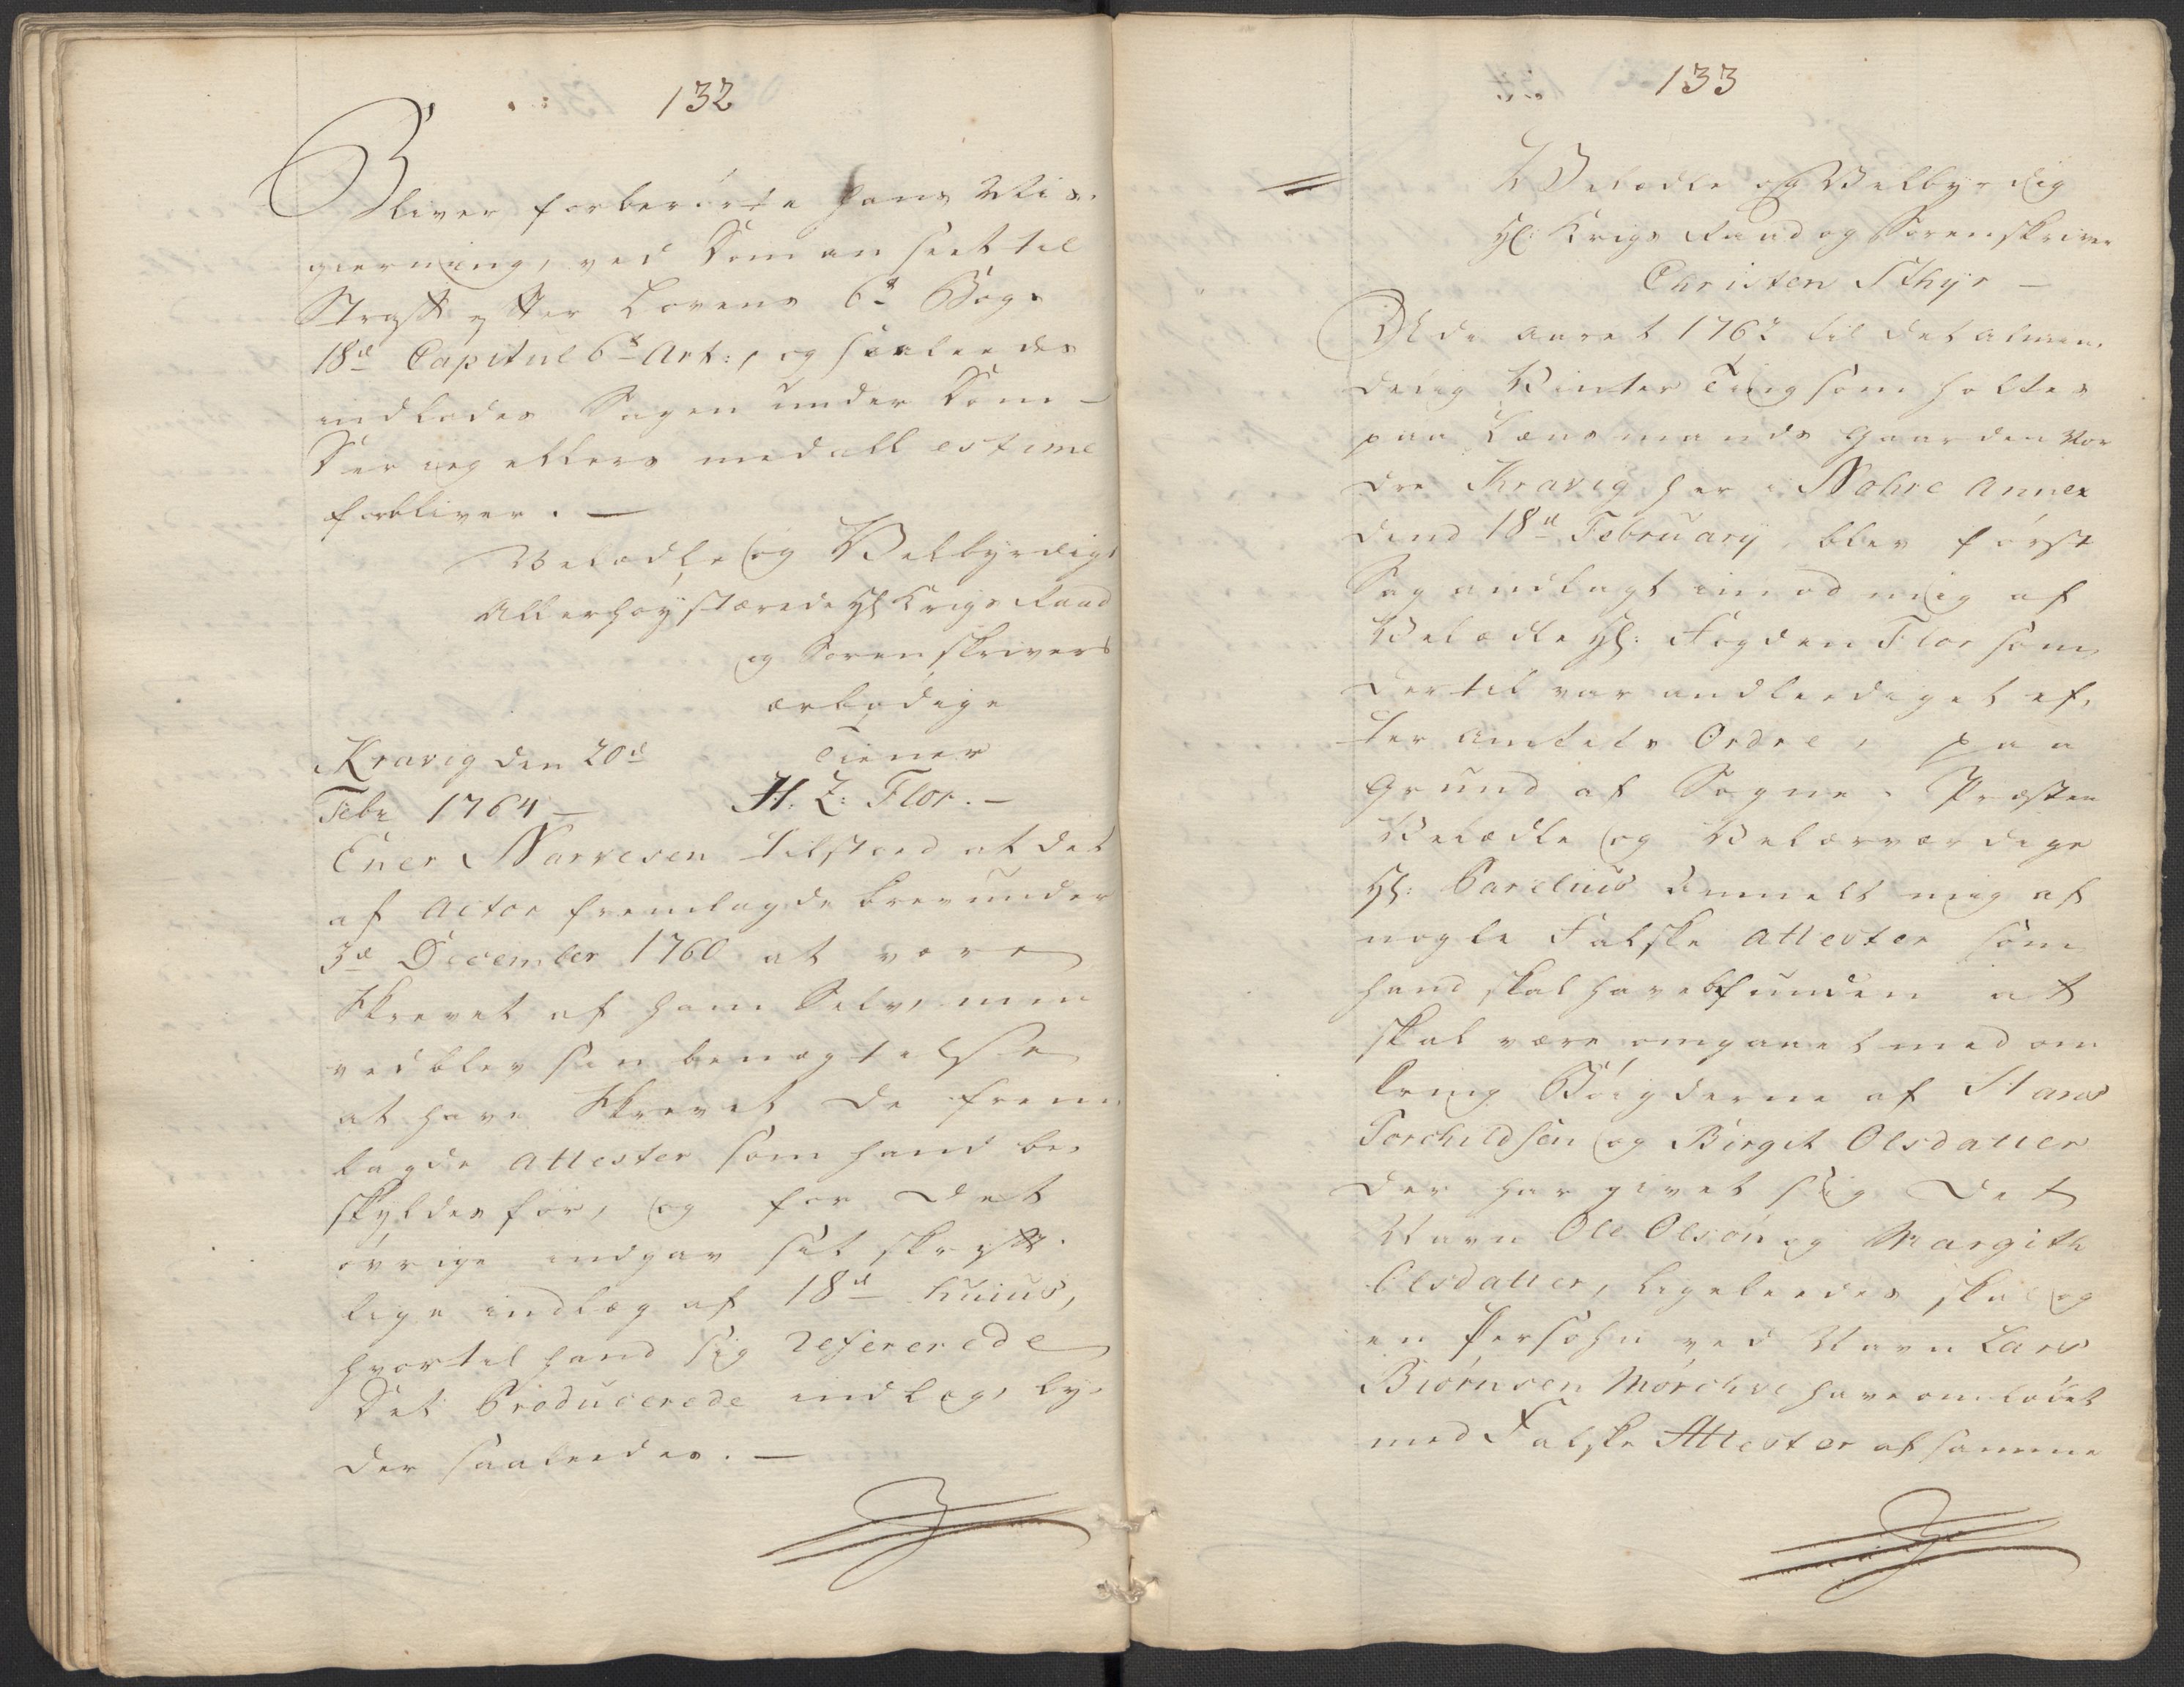 132
Bliver forberørte hans Mis-
gierning, ved Dom an seet til
Straff effter Lovens 6te Bogs
18de Capitul 6te Art:, og saaleedes
indlades Sagen under Dom –
Der ieg ellers med all estime
forbliver. –
Velædle og Velbyrdige
Allerhøystærede Hr Krigs Raad
og Sorenskrivers
ærbødige
Kravig den 20de Tiener
Febr 1764 – H. Z: Flor. –
Ener Narvesen tilstoed at det
af Actor fremlagde brev under
3de December 1760 at være
Skrevet af ham Selv, men
vedblev sin benægtelse
at have Skrevet de frem
lagde Attester som hand be-
skyldes for, og for det
øvrige indgav sit skrifft-
lige indlæg af 18de huius,
hvortil hand sig refererede
Det Producerede indlæg, ly-
der saaleedes. –
133
Velædle og Velbyrdig
Hr: Krigs Raad og Sorenskriver
Christen Sthyr –
Udi Aaret 1762 til det almin-
delig Vinter Ting som holtes
paa Lænsmands Gaarden Nor
dre Kravig her i Nohre Annex
dend 18de February, blev først
Sag andlagt imod mig af
Velædle Hr: Fogden Flor som
dertil var andleediget ef-
ter Amtets Ordre, paa
Grund af Sogne-Præsten
Velædle og Velærværdige
Hr: Parelius Anmelt mig af
nogle Falske Attester som
hand skal have befunden at
skal være omgaaet med om
kring Bøigderne af Hans
Torchildsen og Birgit Olsdatter
der har givet sig det
Navn Ole Olsøn og Margith
Olsdatter, ligeleedes skal og
en Persohn ved Navn Lars
Biørnsen Mørchve have omløbet
med Falske Attester af samme